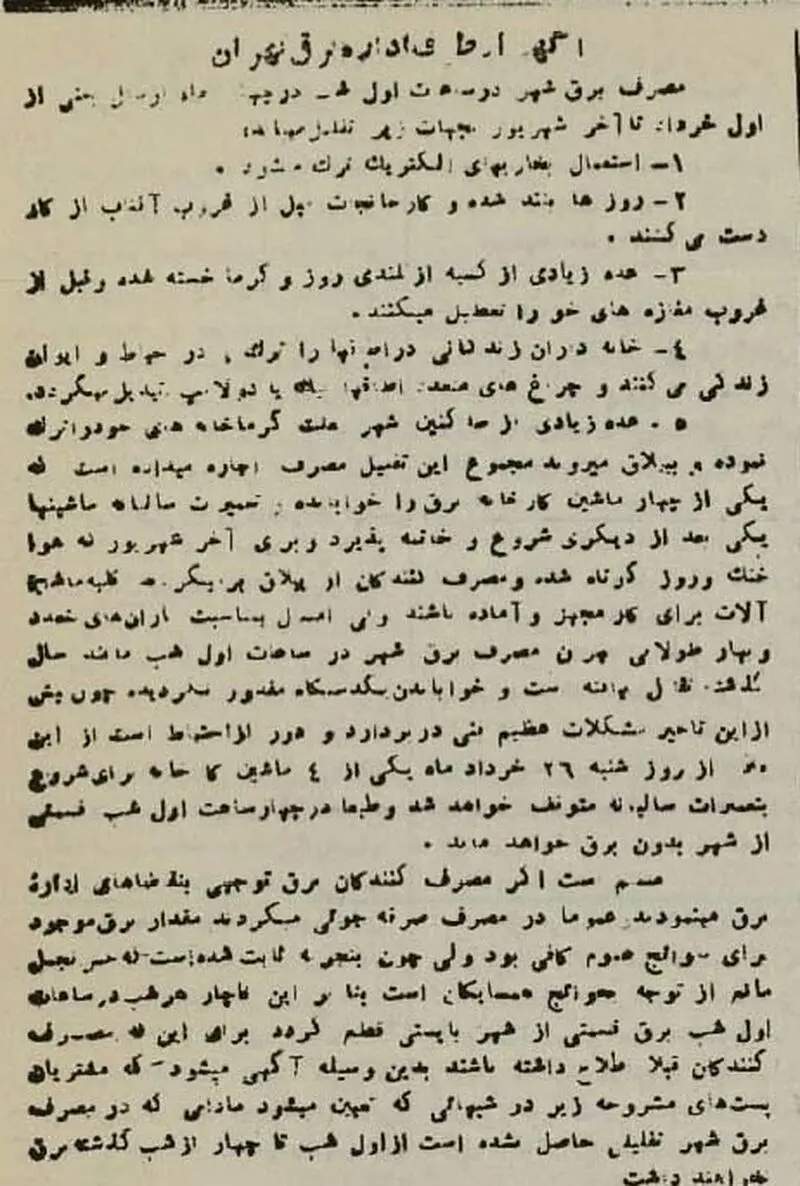 آگهی از طرف اداره برق تهران
مصرف برق شهر در ساعت اول شب در چهار ماه از سال یعنی از
اول خرداد تا آخر شهریور بجهات زیر تقلیل مییابد:
۱- استعمال بخاریهای الکتریک ترک میشود .
۲- روز ها بلند شده و کارخانجات قبل از غروب آفتاب از کار
دست می کشند .
۳- عده زیادی از کسبه از بلندی روز و گرما خسته شده و قبل از
غروب مغازه های خو را تعطیل میکنند .
٤- خانه داران زندگانی در اطاقها را ترک و در حیاط و ایوان
زندگی می کنند و چراغ های متعدد اطاقها بیک یا دو لامپ تبدیل میگردد.
٥ - عده زیادی از ساکنین شهر بعلت گرما خانه های خود را ترک
نموده و به ییلاق میروند مجموع این تقلیل مصرف اجازه میداده است که
یکی از چهار ماشین کارخانه برق را خوابانده و تعمیرات سالیانه ماشینها
یکی بعد از دیگری شروع و خاتمه پذیرد و برای آخر شهریور که هوا
خنک و روز کوتاه شده و مصرف کنندگان از ییلاق بر میگردند کلیه ماشین
آلات برای کار مجهز و آماده باشند ولی امسال بمناسبت باران‌های ممتد
و بهار طولانی چون مصرف برق شهر در ساعات اول شب مانند سال
گذشته تقلیل نیافته است و خواباندن یکدستگاه مقدور نگردیده چون بیش
از این تاخیر مشکلات عظیم فنی در بر دارد و دور از احتیاط است از این
رو از روز شنبه ۲٦ خرداد ماه یکی از ٤ ماشین کارخانه برای شروع
بتعمیرات سالیانه متوقف خواهد شد و طبعا در چهار ساعت اول شب قسمتی
از شهر بدون برق خواهد ماند .
مسلم است اگر مصرف کنندگان برق توجهی بتقاضاهای ادارهٔ
برق مینمودند عموما در مصرف صرفه جوئی میکردند مقدار برق موجود
برای حوائج عموم کافی بود ولی چون بتجربه ثابت شده است که
مانع از توجه بحوائج همسایگان است بنا بر این ناچار هر شب در ساعات
اول شب برق قسمتی از شهر بایستی قطع گردد برای این که مصرف
کنندگان قبلا اطلاع داشته باشند بدین وسیله آگهی میشود که مشتریان
پست‌های مشروحه زیر در شبهائی که تعیین میشود مادامی که در مصرف
برق شهر تقلیلی حاصل نشده است از اول شب تا چهار از شب گذشته برق
نخواهند داشت